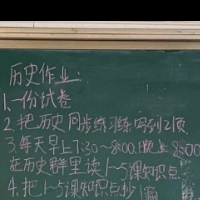 历史作业:
1.一份试卷
2.把历史同步练习练写到2页
3.每天早上7:30~8:00.晚上8:00
在历史群里读1~5课知识点
4.把1~5课知识点抄